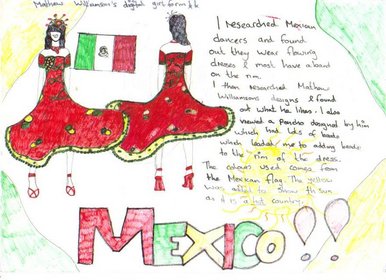 Mathew Williamson's digital girl
I researched Mexican
dancers and found
out they wear flowing
dresses & most have a band
on the rim.
I then researched Mathew
Williamsons designs & found
out what he likes. I also
viewed a Poncho designed by him
which had lots of beads
which leaded me to adding beads
to the rim of the dress.
The colours used comes from
the Mexican flag. The yellow
was added to show the sun
as it is a hot country.
MEXICO!!